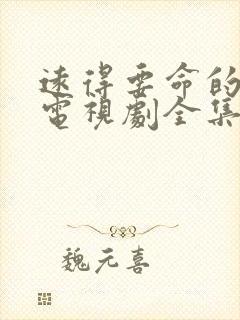 遠得要命的
電視劇全集
魏元喜